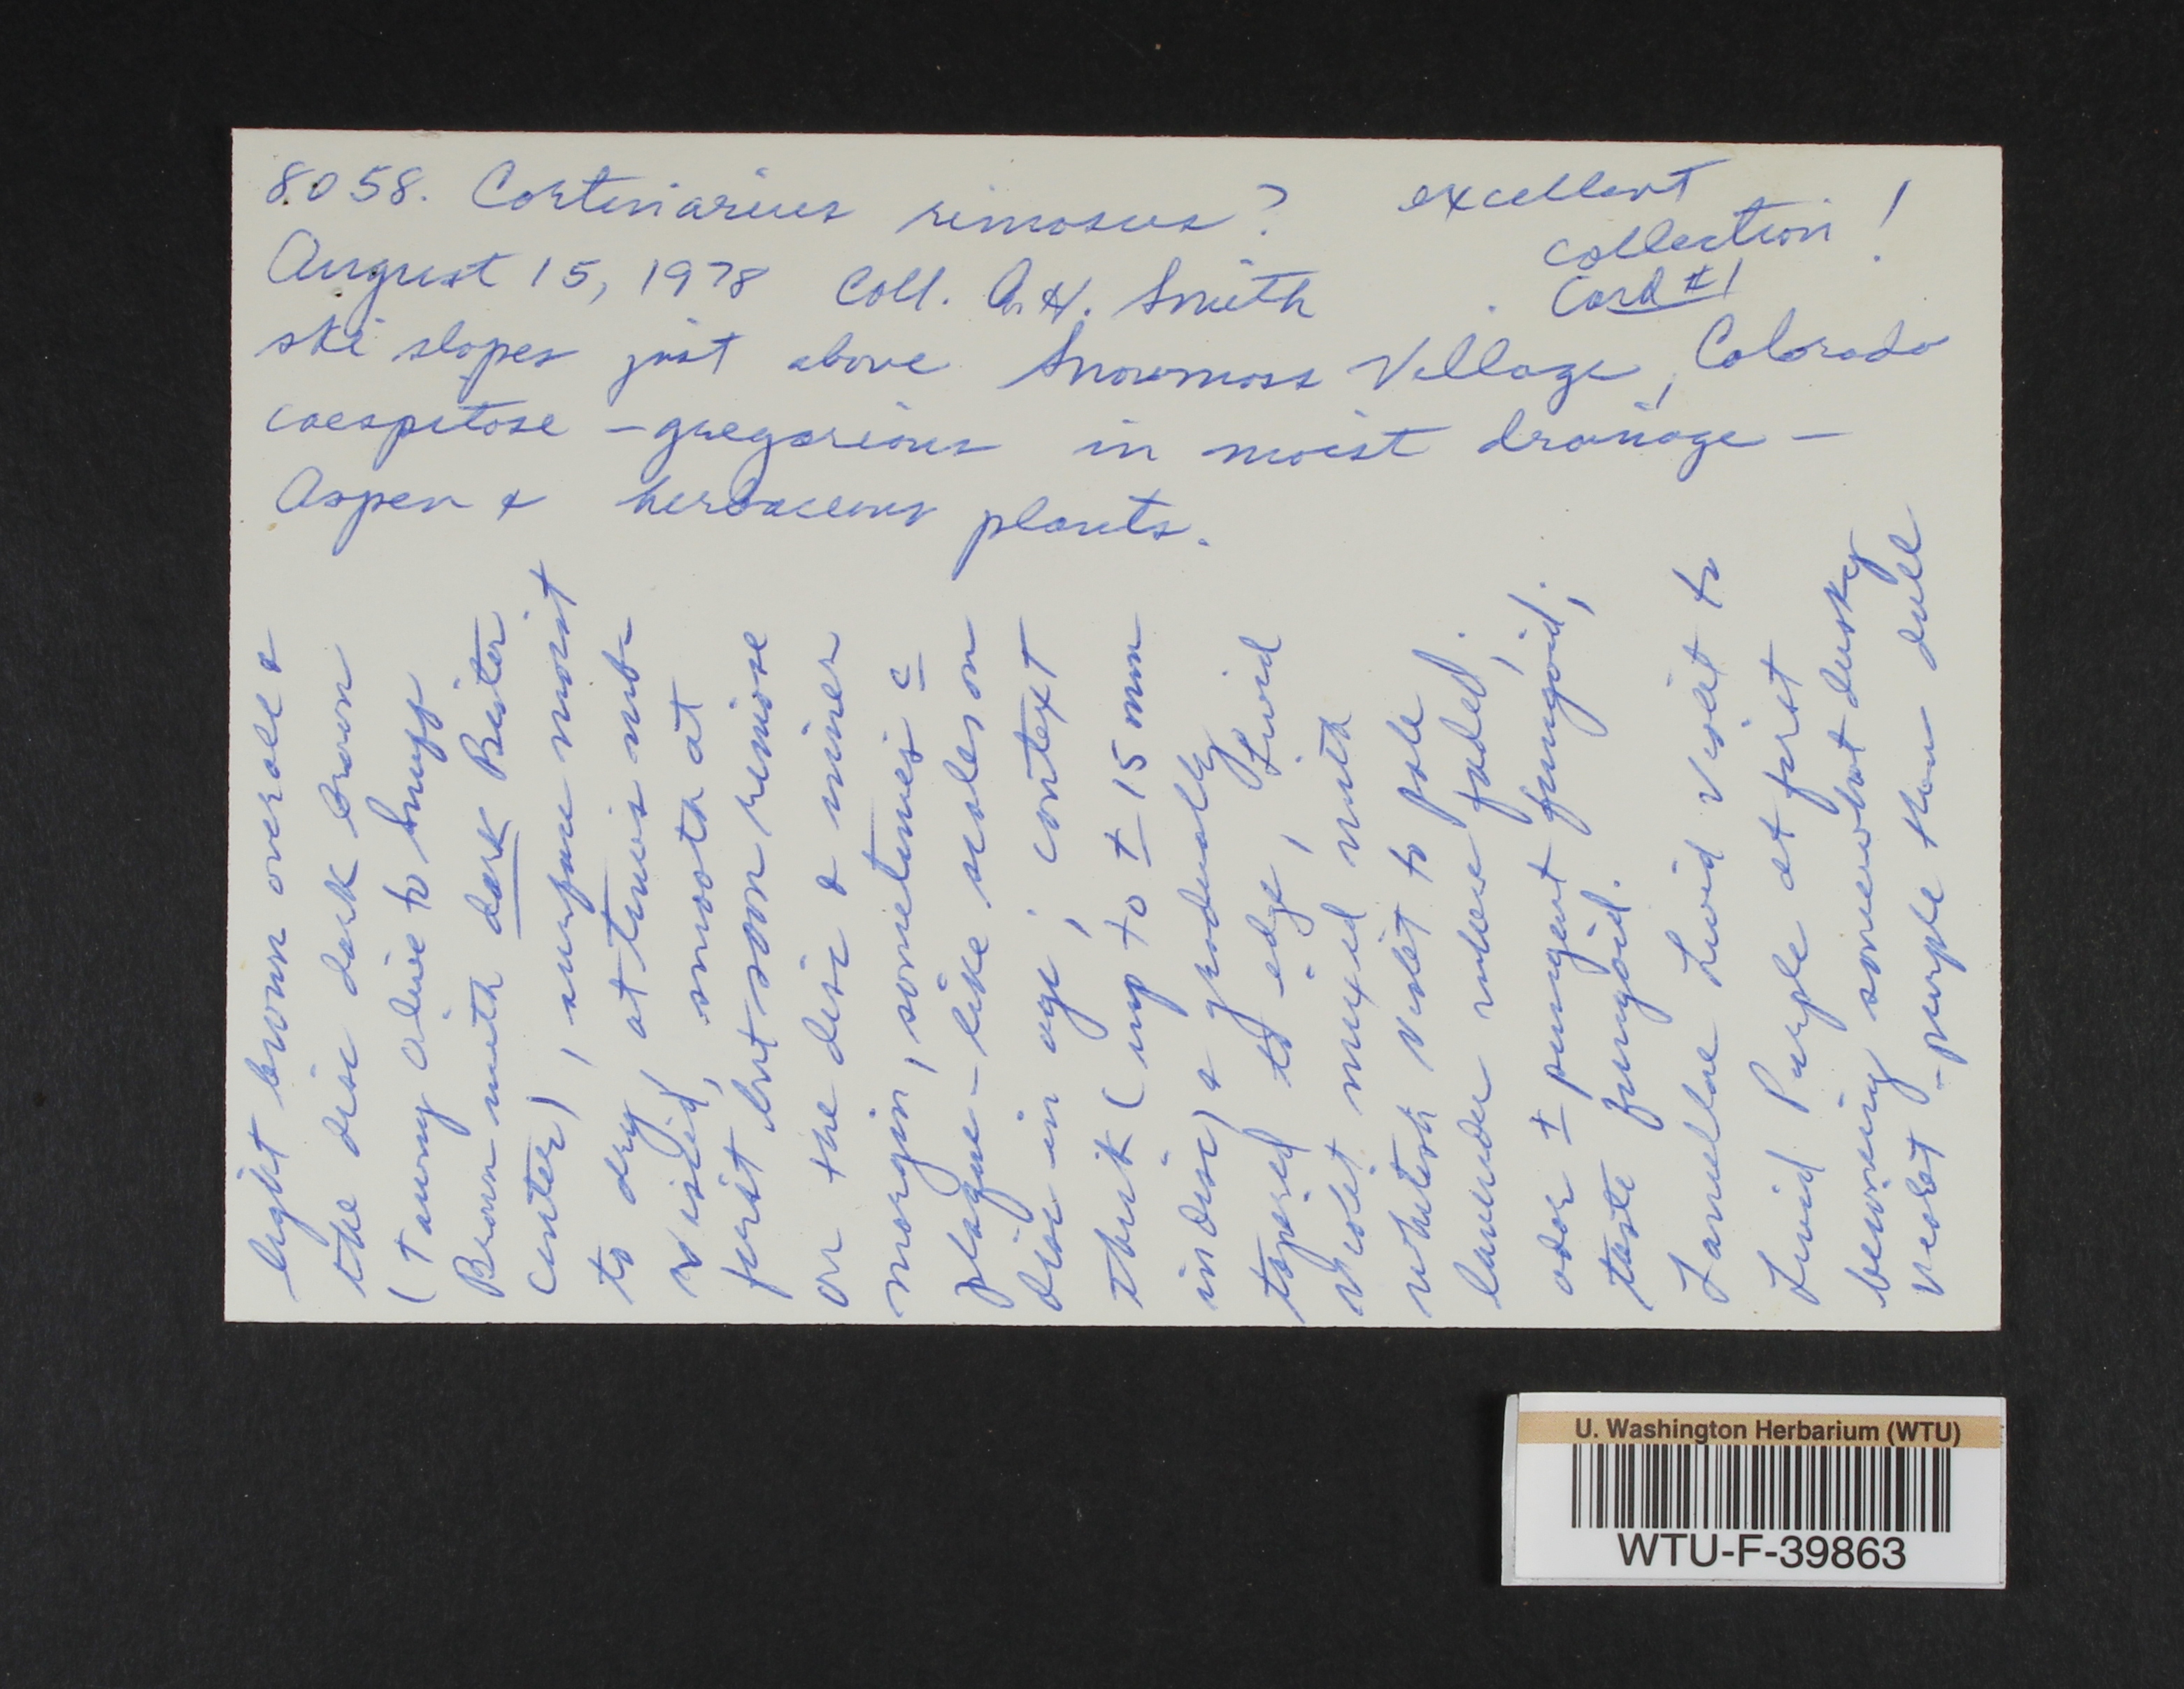 8058. Cortinarius rimosus? excellent
collection!
August 15, 1978 Coll. A. H. Smith Card #1
ski slopes just above Snowmass Village, Colorado
caespitose - gregarious in moist drainage -
Aspen & herbaceous plants.
light brown overall &
the disc dark brown
(Tawny Olive to Snuff
Brown with dark Bister
center), surface moist
to dry, at times sub-
viscid, smooth at
first but soon rimose
on the disc & inner
margin, sometimes c
plaque-like scales on
disc in age; context
thick (up to ± 15 mm
in disc) & gradually
tapered to edge, Livid
Violet mixed with
whitish violet to pale
lavender where faded;
odor ± pungent fungoid;
taste fungoid.
Lamellae Livid Violet to
Livid Purple at first
becoming somewhat dusky
violet-purple then dull
U. Washington Herbarium (WTU)
WTU-F-39863